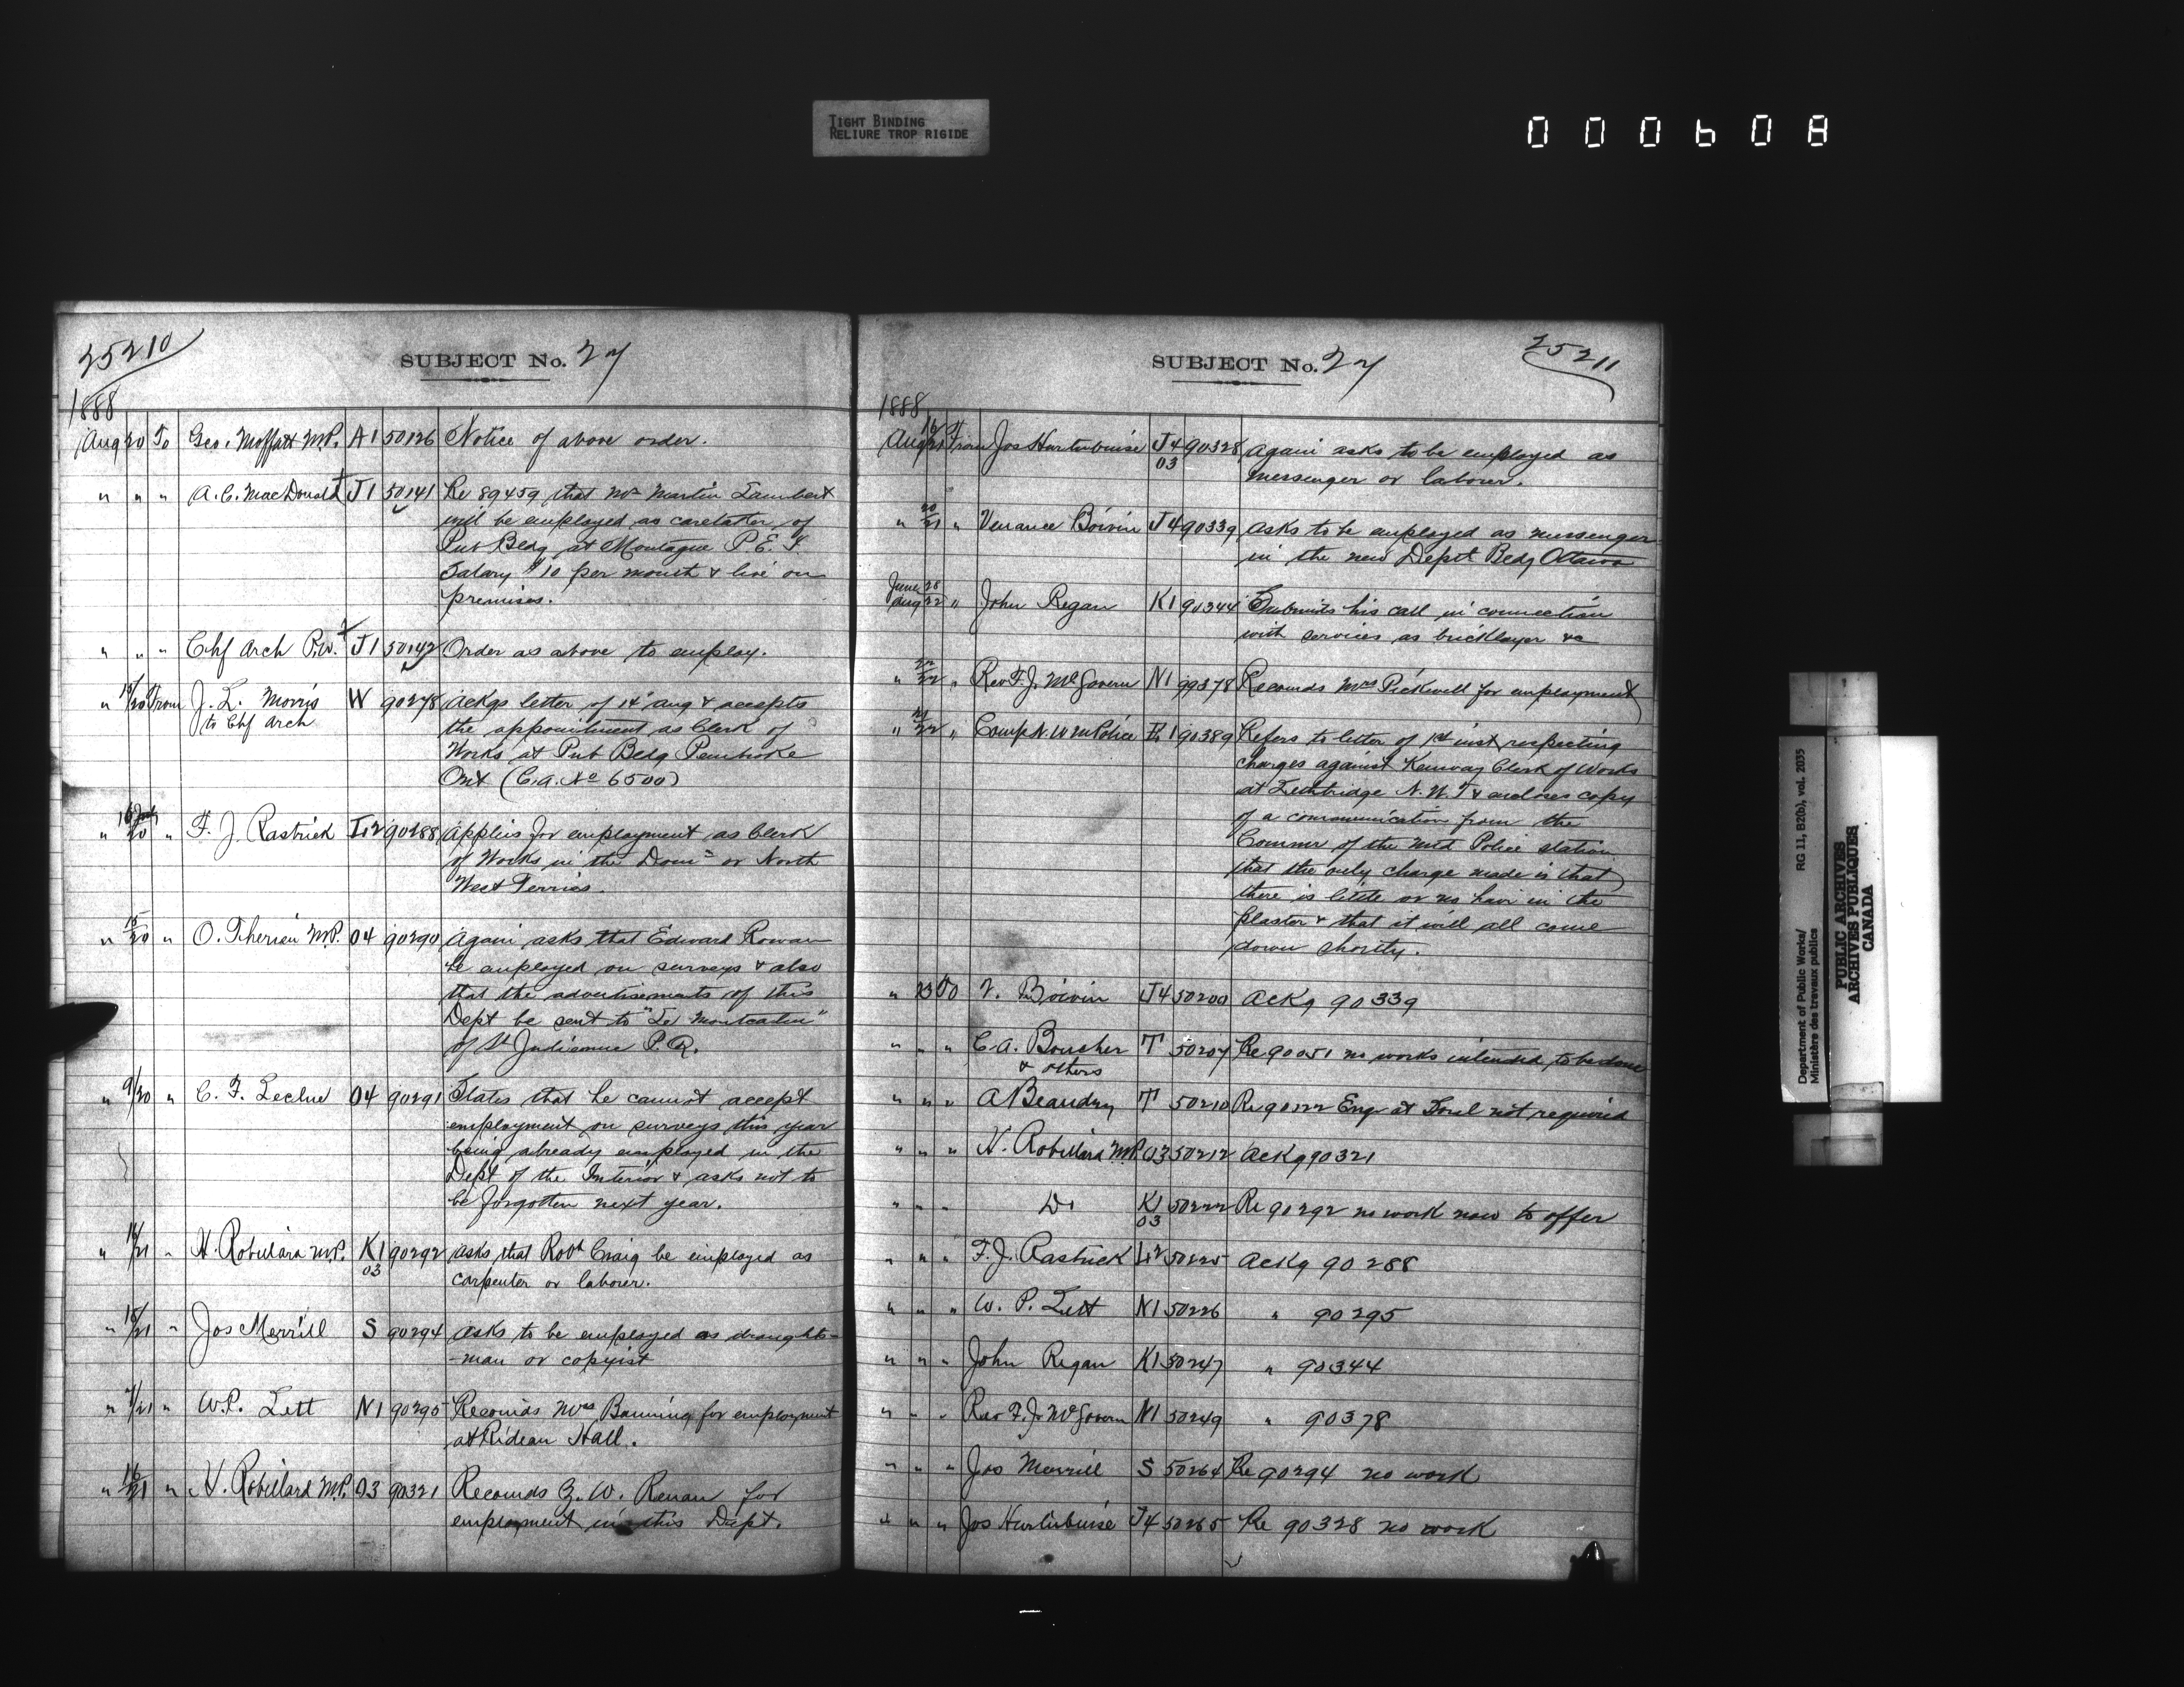 TIGHT BINDING
RELIURE TROP RIGIDE
000608
25210
SUBJECT No. 27
1888
Aug 20 To Geo. Moffatt M.P. A1 50126 Notice of above order.
" " " A. C. MacDonald J1 50141 Re 89459, that Mr Martin Lambert
will be employed as caretaker of
Pub Bldg at Montague P. E. I.
Salary $10 per month & live on
premises.
" " " Chf Arch P.W. J1 50142 Order as above to employ.
" 15/20 From J. L. Morris W 90278 Ackgs letter of 14 Aug & accepts
to Chf Arch the appointment as Clerk of
Works at Pub Bldg Pembroke
Ont (C.A. No 6500)
" 16 July/20 " F. J. Rastrick 90288 Applies for employment as Clerk
of Works in the Domn or North
West Terries.
" 15/20 " O. Therien M.P. O4 90290 Again asks that Edward Rowan
be employed on surveys & also
that the advertisements of this
Dept be sent to "Le Montcalm"
of St P.Q.
" 9/20 " C. F. Leclue O4 90291 States that he cannot accept
employment on surveys this year
being already employed in the
Dept of the Interior & asks not to
be forgotten next year.
" 14/21 " H. Robillard M.P. K1 90292 Asks that Robt Craig be employed as
03 carpenter or laborer.
" 15/21 " Jos Merrill S 90294 Asks to be employed as draughts-
-man or copyist
" /21 " W.P. Lett N1 90295 Recomds Mrs Banning for employment
at Rideau Hall.
" 16/21 " H. Robillard M.P. O3 90321 Recomds G. W. Renau for
employment in this Dept.
SUBJECT No. 27
25211
1888
Aug 16/21 From Jos Hurtubuise J4 90328 Again asks to be employed as
03 messenger or laborer.
" 20/21 " Venance Boivin J4 90339 Asks to be employed as messenger
in the new Deptl Bldg Ottawa
June 28
Aug 22 " John Regan K1 90344 Submits his call in connection
with services as bricklayer &c
" 22/22 " Rev F. J. McGovern N1 99378 Recomds Mrs Pickwell for employment
" 21/22 " Comp N. W. M Police 90389 Refers to letter of 1st inst respecting
charges against Kenway Clerk of Works
at Lethbridge N. W. T & encloses copy
of a communication from the
Commr of the Mtd Police station
that the only charge made is that
there is little or no hair in the
plaster & that it will all come
down shortly.
" 23 To V. Boivin J4 50200 Ackg 90339
" " " C. A. Boucher T 50207 Re 90051 no works intended to be done
& others
" " " A Beaudry T 50210 Re 90122 Engr at Sorel not required
" " " H. Robillard M.P. O3 50212 Ackg 90321
" " " Do K1 50222 Re 90292 no work now to offer
03
" " " F. J. Rastrick L2 50225 Ackg 90288
" " " W. P. Lett N1 50226 " 90295
" " " John Regan K1 50247 " 90344
" " " Rev F. J. McGovern N1 50249 " 90378
" " " Jos Merrill S 50264 Re 90294 no work
" " " Jos Hurtubuise J4 50265 Re 90328 no work
Department of Public Works/
Ministère des travaux publics
RG 11, B2(b), vol. 2035
PUBLIC ARCHIVES
ARCHIVES PUBLIQUES
CANADA